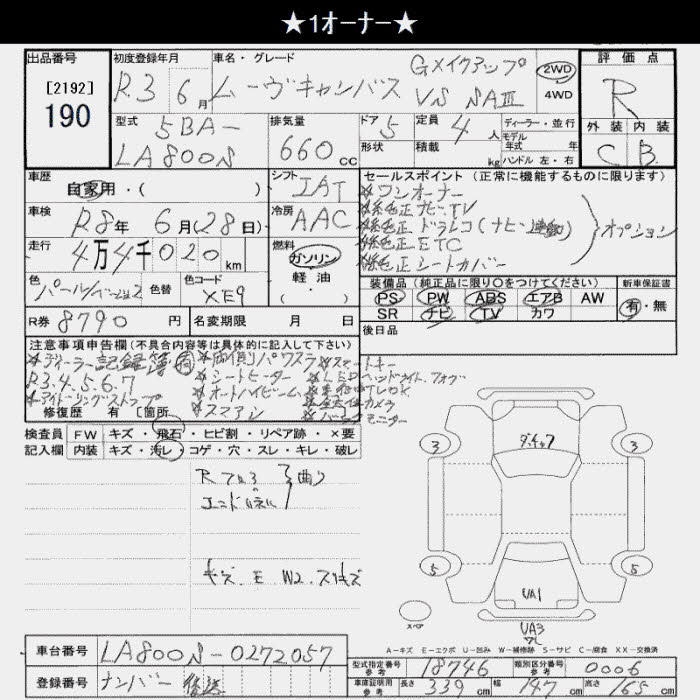 ★1オーナー★
出品番号 初度登録年月 車名・グレード 評価点
[2192]
190
R3 6月 ムーヴキャンバス Gメイクアップ VS SAⅢ 2WD 4WD R
型式 排気量 ドア 定員 ディーラー・並行 外装 内装
5BA-
LA800S 660cc 5 4人 モデル年式 年式 C B
形状 積載 kg ハンドル 左・右
車歴 シフト セールスポイント (正常に機能するものに限ります)
自家用・( ) IAT
※ワンオーナー
※純正ナビ・TV
※純正ドラレコ(ナビ連動)
※純正ETC
※純正シートカバー
オプション
車検 R8年6月(28日) 冷房 AAC
走行 4万4千020km 燃料 ガソリン
軽油
( ・ )
色 パール/ベージュ2 色替 色コード XE9
装備品 (純正品に限り○をつけてください) 新車保証書
PS PW ABS エアB AW 有・無
SR ナビ TV カワ
R券 8790円 名変期限 月 日 後日品
注意事項申告欄(不具合内容等は具体的に記入して下さい)
※ディーラー記録簿有 ※両側パワスラ ※スマートキー
R3.4.5.6.7 ※シートヒーター ※LEDヘッドライト、フォグ
※アイドリングストップ ※オートハイビーム
※スマアシ ※全方位カメラ
修復歴 有 [箇所 ※バックモニター
検査員 FW キズ・飛石・ヒビ割・リペア跡・×要
記入欄 内装 キズ・汚レ・コゲ・穴・スレ・キレ・破レ
Rフロア 曲り
エンドパネル
キズ・E W2・スリキズ
3 ダッチャク 3
5 5
UA1
スペア
UA3
A-キズ E-エクボ U-凹み W-補修跡 S-サビ C-腐食 XX-交換済
車台番号 LA800S-0272057
登録番号 ナンバー後送
型式指定番号 参考 18746 類別区分番号 参考 0006
車庫証明用 参考 長さ 339cm 幅 147cm 高さ 165cm